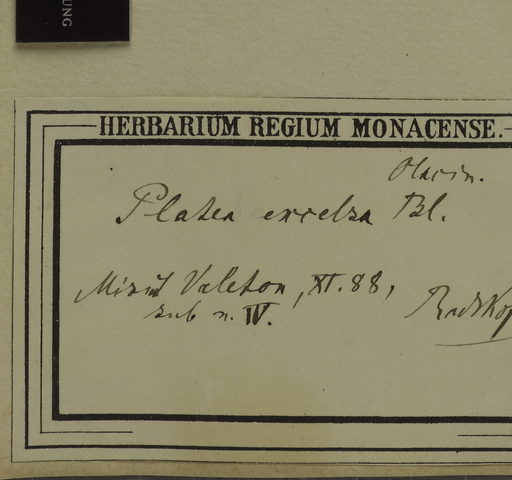 UNG
HERBARIUM REGIUM MONACENSE.
Olacin.
Platea excelsa Bl.
Misit Valeton, XI. 88,
sub n. IV.
Radlkof